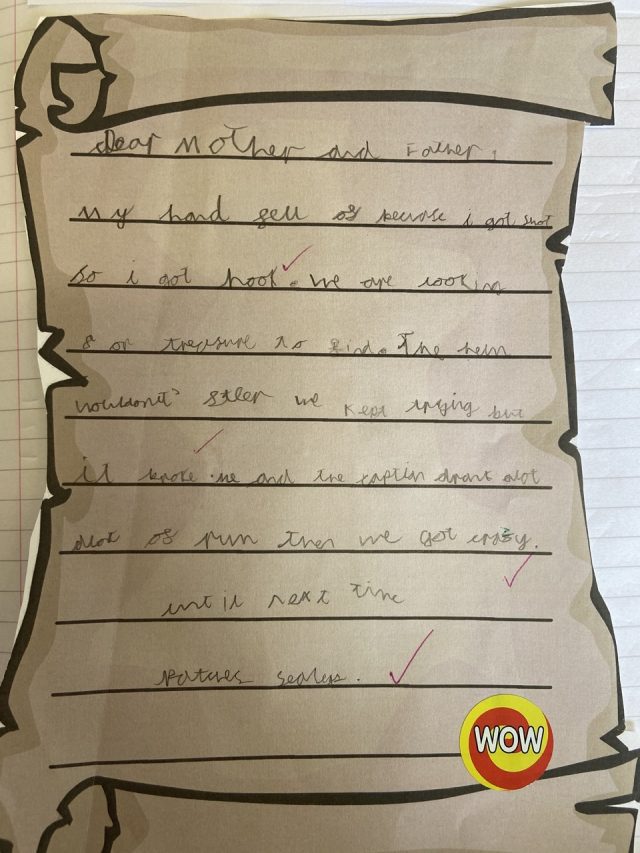 Dear Mother and Father,
My hand fell of becurse i got shot
So i got hook. We are looking
for treasure to find. The helm
wouldn't steer we kept trying but
it broke. me and the captin drank alot
alot of rum then we got crazy.
until next time
Patches
WOW